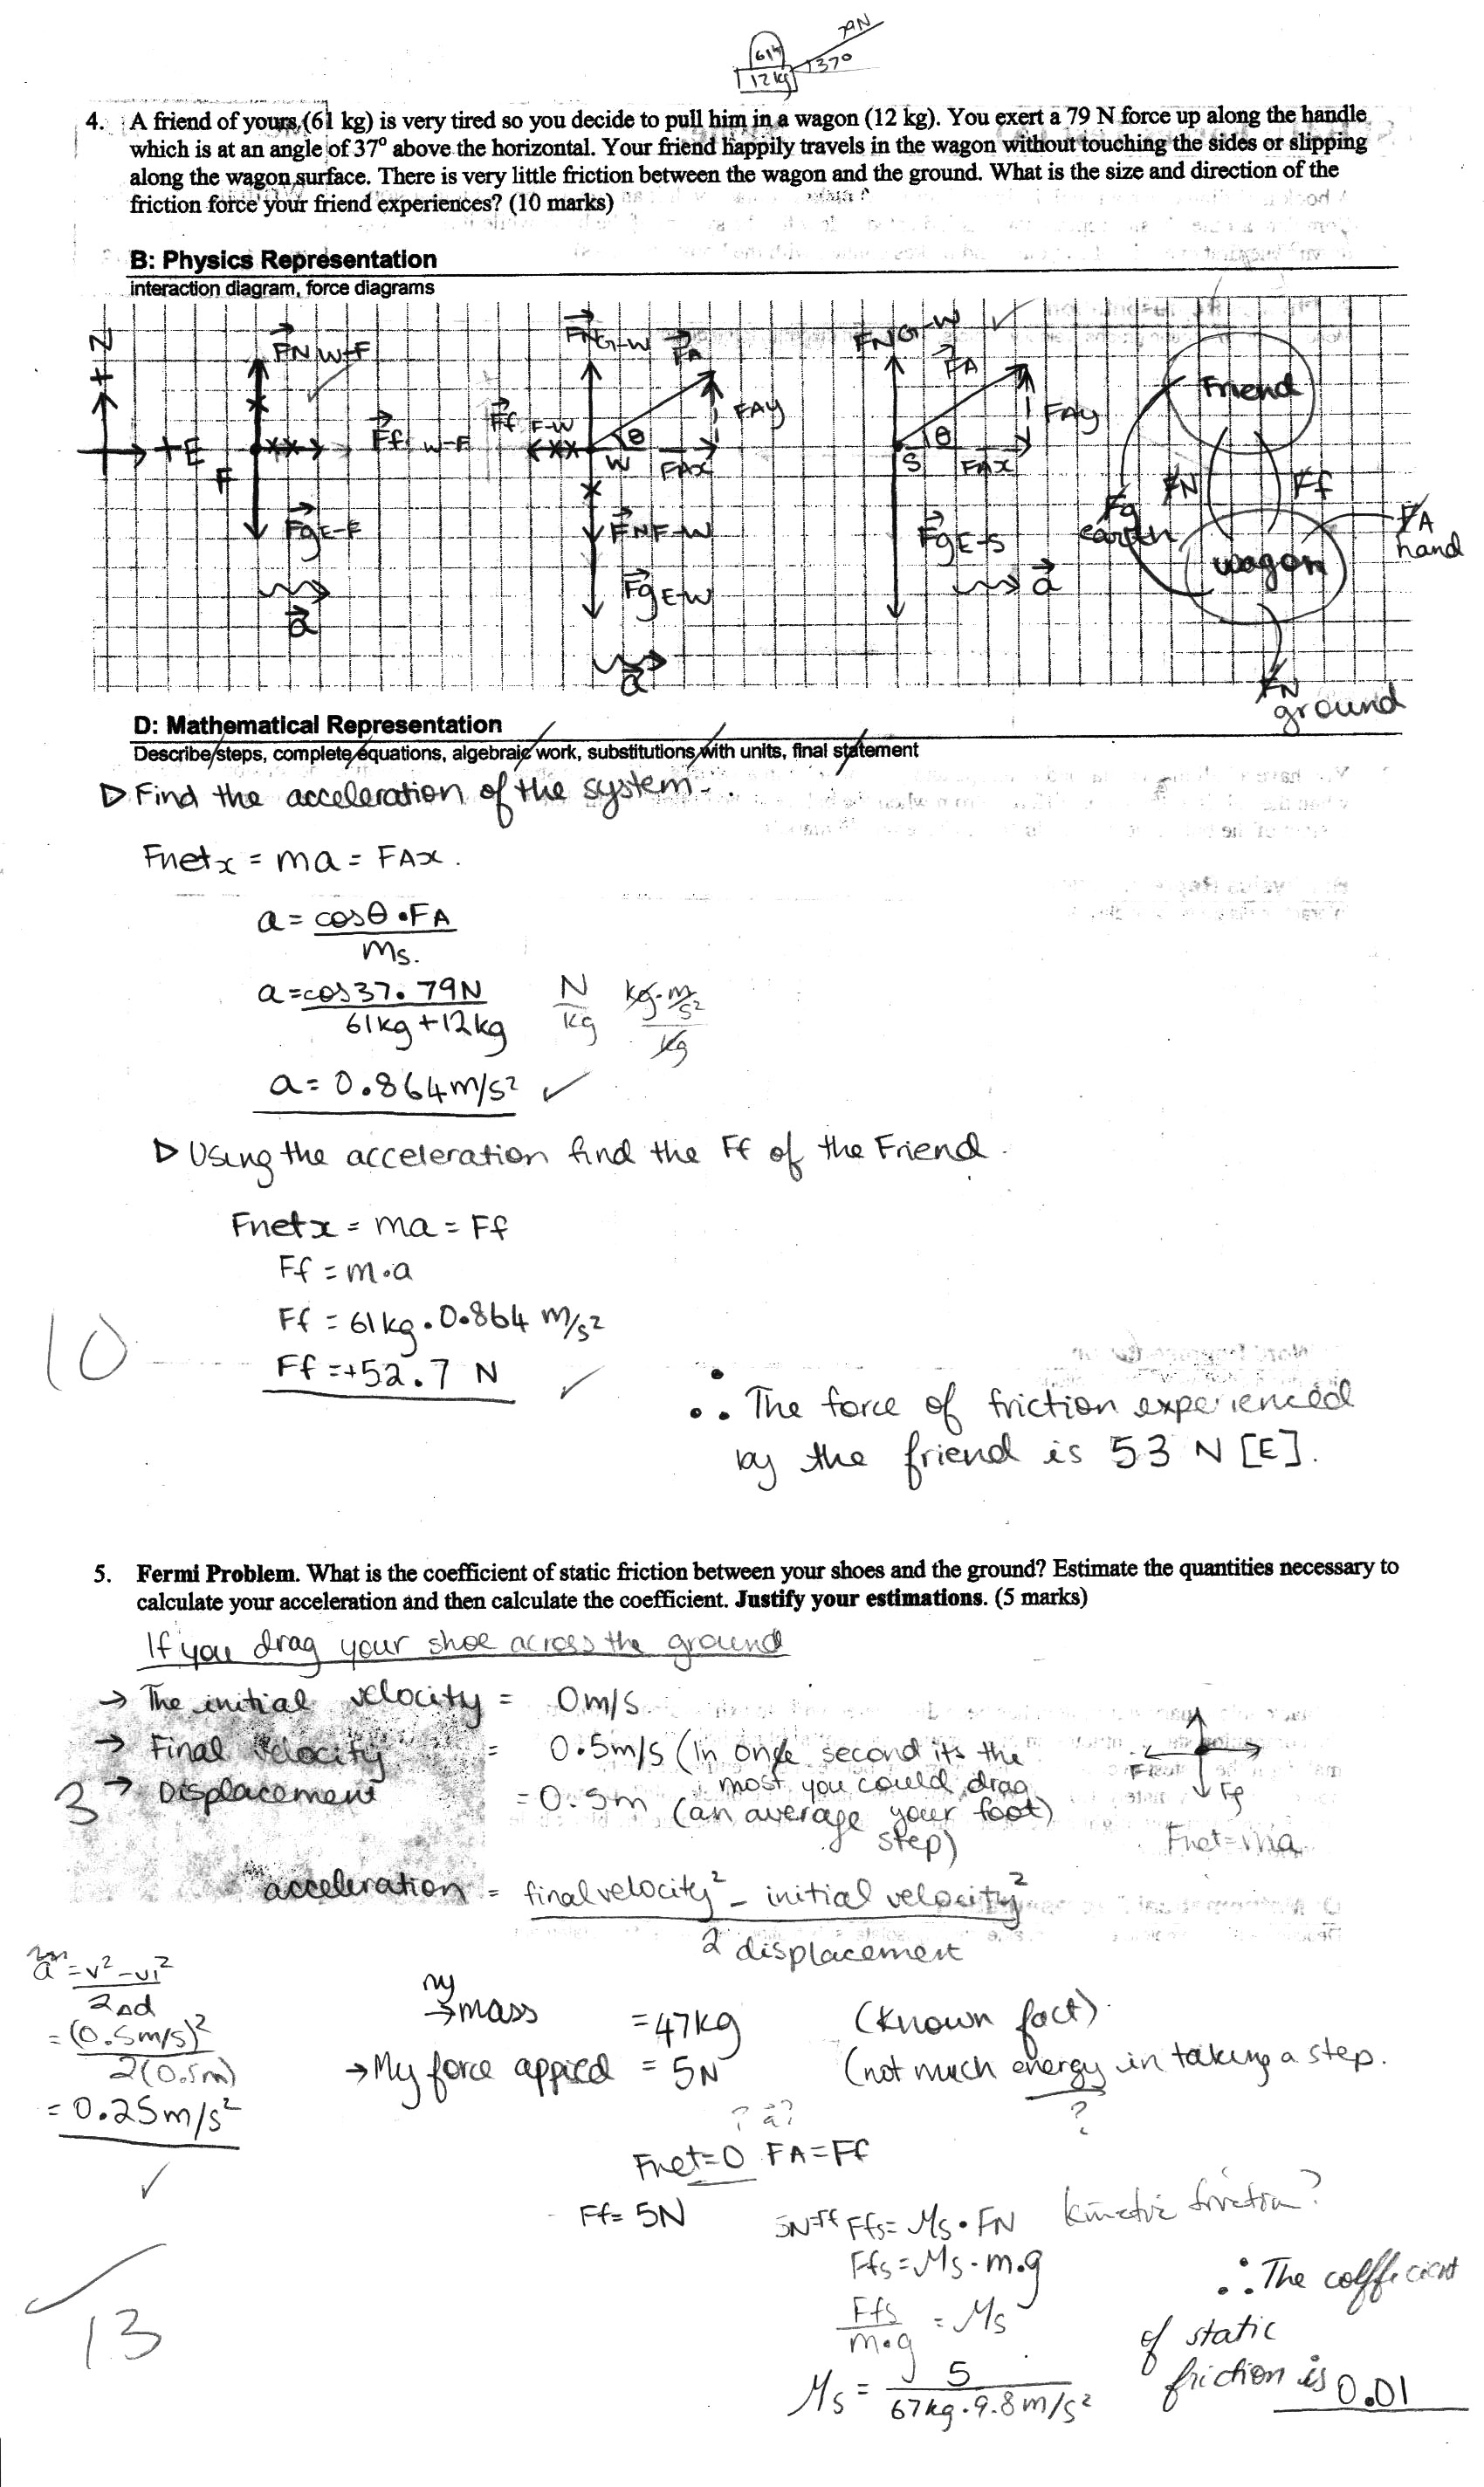 79N
61
12kg
37°
4. A friend of yours (61 kg) is very tired so you decide to pull him in a wagon (12 kg). You exert a 79 N force up along the handle
which is at an angle of 37° above the horizontal. Your friend happily travels in the wagon without touching the sides or slipping
along the wagon surface. There is very little friction between the wagon and the ground. What is the size and direction of the
friction force your friend experiences? (10 marks)
B: Physics Representation
interaction diagram, force diagrams
+N
+E
FN W-F
Ff W-F
F
Fg E-F
a
FN G-W
FA
Ff F-W
θ
FAy
W
FAx
FN F-W
Fg E-W
a
FN G-W
FA
θ
FAy
S
FAx
Fg E-S
a
Friend
FN
Ff
Fg
earth
wagon
FA
hand
FN
ground
D: Mathematical Representation
Describe steps, complete equations, algebraic work, substitutions with units, final statement
▷ Find the acceleration of the system.
Fnetx = ma = FAx.
a = cosθ • FA
ms.
a = cos37 • 79N
61kg + 12kg
N
kg
kg·m/s²
kg
a = 0.864 m/s² ✓
▷ Using the acceleration find the Ff of the Friend.
Fnetx = ma = Ff
Ff = m•a
Ff = 61kg • 0.864 m/s²
Ff = +52.7 N ✓
10
∴ The force of friction experienced
by the friend is 53 N [E].
5. Fermi Problem. What is the coefficient of static friction between your shoes and the ground? Estimate the quantities necessary to
calculate your acceleration and then calculate the coefficient. Justify your estimations. (5 marks)
If you drag your shoe across the ground
→ The initial velocity = 0m/s
→ Final velocity = 0.5m/s (In one second its the
most you could drag
your foot)
3
→ Displacement = 0.5m (an average
step)
Fg
Fnet=ma
acceleration = final velocity² - initial velocity²
2 displacement
a = v² - v1²
2Δd
= (0.5m/s)²
2(0.5m)
= 0.25m/s²
✓
my
→ mass = 47kg (known fact)
→ My force appied = 5N (not much energy in taking a step.
?
? a?
Fnet=0 FA=Ff
Ff= 5N
5N=Ff Ffs= Ms • FN
kinetic friction?
Ffs = Ms · m•g
Ffs = Ms
m•g
Ms = 5
67kg • 9.8m/s²
∴ The coefficient
of static
friction is 0.01
✓
13